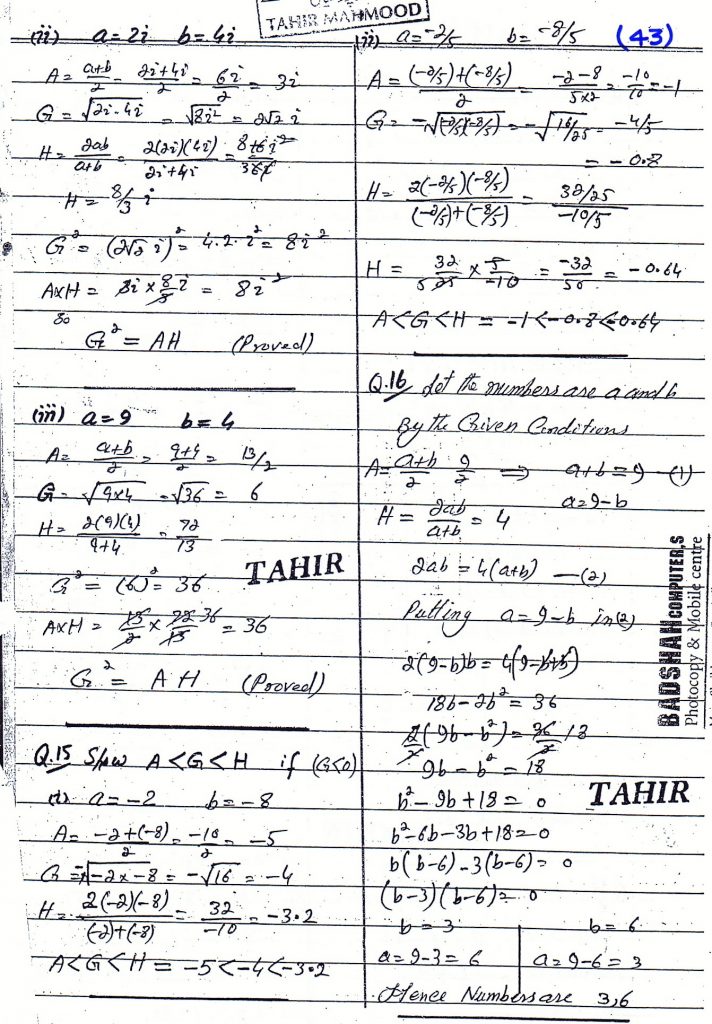 TAHIR MAHMOOD
(43)
(ii) a=2i b=4i
A = a+b/2 = 2i+4i/2 = 6i/2 = 3i
G = √2i·4i = √8i² = 2√2 i
H = 2ab/a+b = 2(2i)(4i)/2i+4i = 8+6i²/36i
H = 8/3 i
G² = (2√2 i)² = 4.2.i² = 8i²
AxH = 3i x 8/3 i = 8i²
so
G² = AH (Proved)
(iii) a=9 b=4
A = a+b/2 = 9+4/2 = 13/2
G = √9x4 = √36 = 6
H = 2(9)(4)/9+4 = 72/13
G² = (6)² = 36
TAHIR
AxH = 13/2 x 72/13 36 = 36
G² = AH (Proved)
Q.15 Show A<G<H if (G<0)
(i) a=-2 b=-8
A = -2+(-8)/2 = -10/2 = -5
G = -√-2x-8 = -√16 = -4
H = 2(-2)(-8)/(-2)+(-8) = 32/-10 = -3.2
A<G<H = -5<-4<-3.2
(ii) a=-2/5 b=-8/5
A = (-2/5)+(-8/5)/2 = -2-8/5x2 = -10/10 = -1
G = -√(-2/5)(-8/5) = -√16/25 = -4/5
= -0.8
H = 2(-2/5)(-8/5)/(-2/5)+(-8/5) = 32/25/-10/5
H = 32/5 25 x 5/-10 = -32/50 = -0.64
A<G<H = -1<-0.8<-0.64
Q.16 Let the numbers are a and b
By the Given Conditions
A = a+b/2 9/2 ⇒ a+b=9 —(1)
a=9-b
H = 2ab/a+b = 4
2ab = 4(a+b) —(2)
Putting a=9-b in(2)
2(9-b)b = 4(9-b+b)
18b-2b² = 36
2/2(9b-b²) = 36/2 18
9b-b² = 18
b²-9b+18=0
TAHIR
b²-6b-3b+18=0
b(b-6)-3(b-6)=0
(b-3)(b-6)=0
b=3 b=6
a=9-3=6 a=9-6=3
Hence Numbers are 3,6
BADSHAH COMPUTER,S
Photocopy & Mobile centre